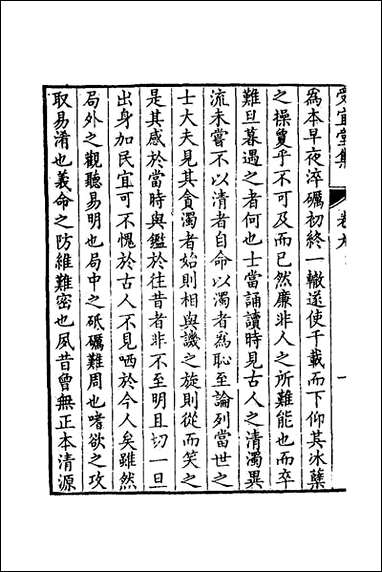 受宜堂集
卷九
一
為本早夜淬礪初終一轍遂使千載而下仰其冰蘖
之操敻乎不可及而已然廉非人之所難能也而卒
難旦暮遇之者何也士當誦讀時見古人之清濁異
流未嘗不以清者自命以濁者為恥至論列當世之
士大夫見其貪濁者始則相與譏之旋則從而笑之
是其感於當時與鑑於往昔者非不至明且切一旦
出身加民宜可不愧於古人不見哂於今人矣雖然
局外之觀聽易明也局中之砥礪難周也嗜欲之攻
取易淆也義命之防維難密也夙昔曾無正本清源